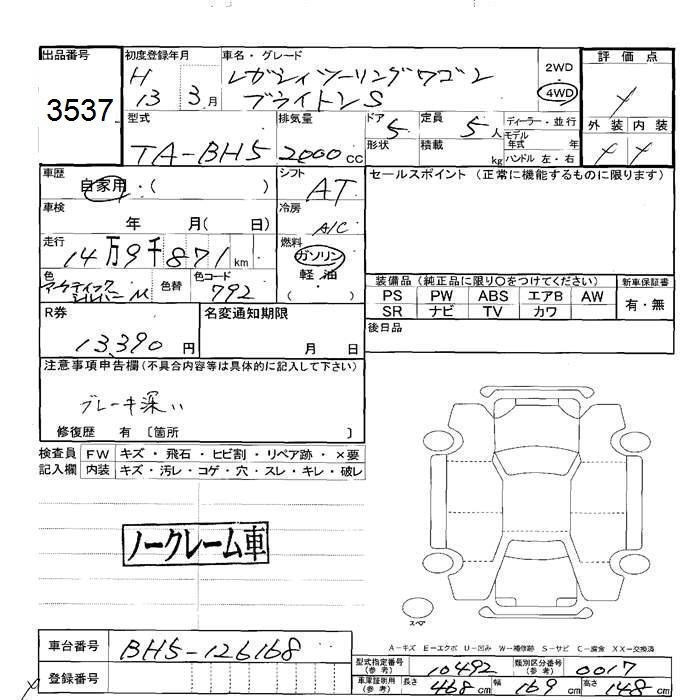 出品番号
3537
初度登録年月
H
13 3月
車名・グレード
レガシィツーリングワゴン
ブライトンS
2WD
・
4WD
評価点
外装 内装
型式
TA-BH5
排気量
2000cc
ドア 5
形状
定員 5人
積載 kg
ディーラー・並行
モデル
年式 年
ハンドル 左・右
車歴
自家用・( )
シフト
AT
セールスポイント(正常に機能するものに限ります)
車検
年 月( 日)
冷房
A/C
走行
14万9千871km
燃料
ガソリン
軽油
( )
色
アークティック
シルバーM
色替
色コード
792
装備品(純正品に限り○をつけてください)
新車保証書
PS PW ABS エアB AW
SR ナビ TV カワ
有・無
R券
13,390円
名変通知期限
月 日
後日品
注意事項申告欄(不具合内容等は具体的に記入して下さい)
ブレーキ深い
修復歴 有 〔箇所 〕
検査員 FW キズ・飛石・ヒビ割・リペア跡・×要
記入欄 内装 キズ・汚レ・コゲ・穴・スレ・キレ・破レ
ノークレーム車
スペア
A-キズ E-エクボ U-凹み W-補修跡 S-サビ C-腐食 XX-交換済
車台番号 BH5-126168
登録番号
型式指定番号
(参考)
10492
類別区分番号
(参考)
0017
車庫証明用
(参考)
長さ 468cm 幅 169cm 高さ 148cm